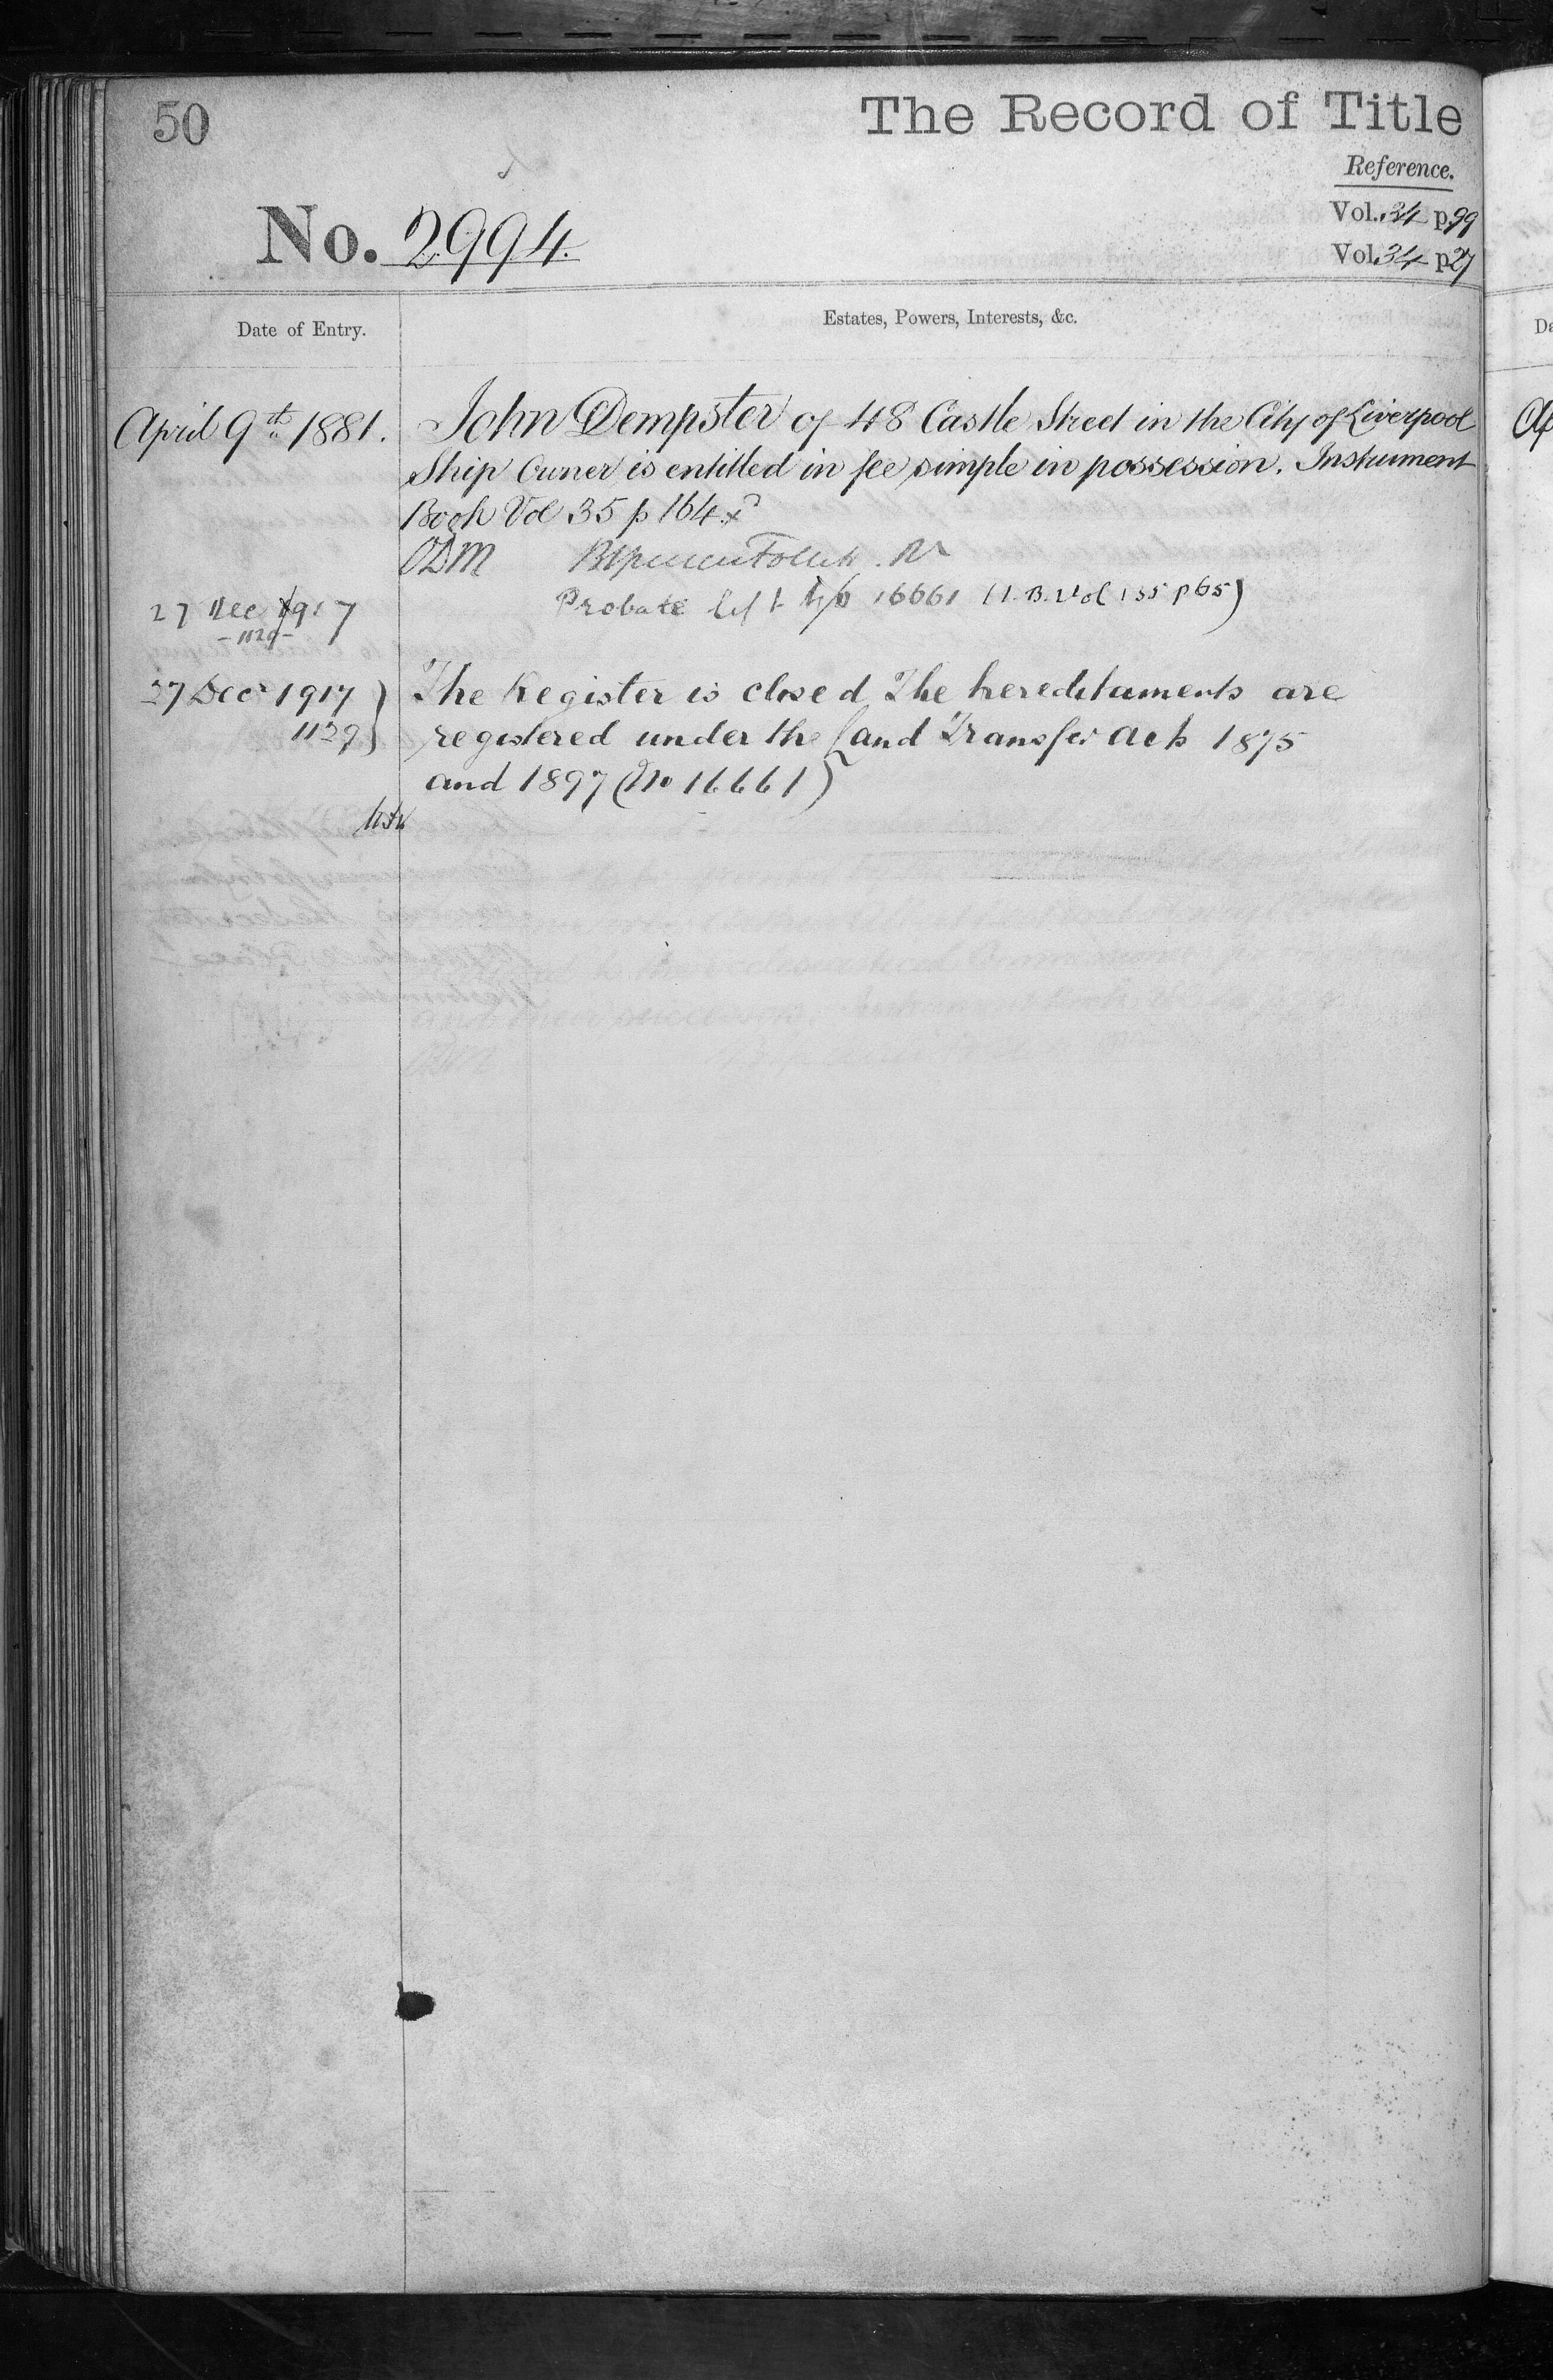 50
The Record of Title
Reference.
No. 2994.
Vol. 34 p. 99
Vol. 34 p. 27
Date of Entry.
Estates, Powers, Interests, &c.
April 9th 1881.
John Dempster of 48 Castle Street in the City of Liverpool
Ship Owner is entitled in fee simple in possession. Instrument
Book Vol 35 p 164
ODM
27 Dec 1917
Probate left 16661 (I.B. Vol 135 p 65)
1129
27 Decr 1917
The Register is closed The hereditaments are
1129
registered under the Land Transfer Acts 1875
and 1897 (No 16661)